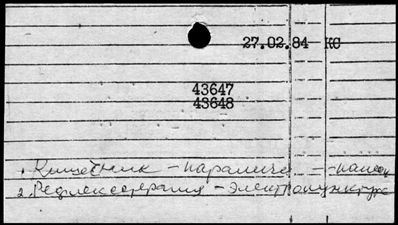 27.02.84 КС
43647
43648
1. Кишечник - паралич -
2. Рефлексотерапия - электропунктура